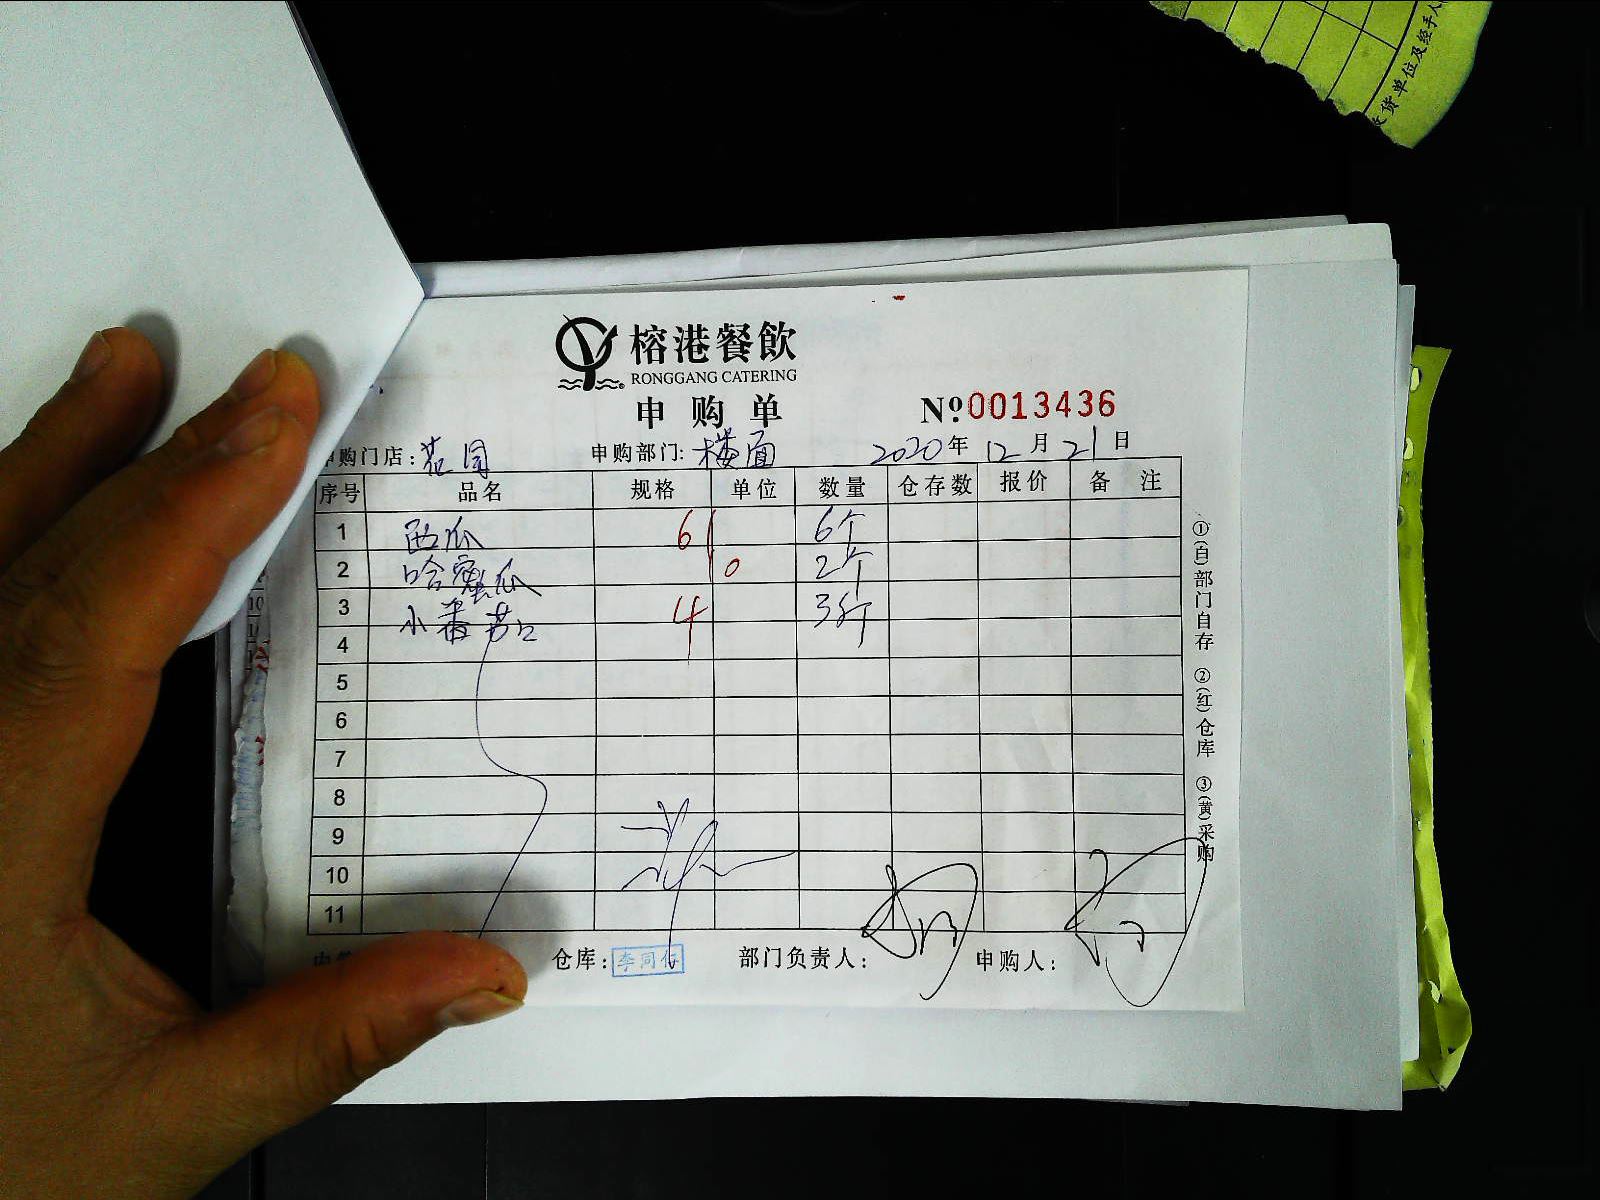 货单位及经手人
榕港餐飲
RONGGANG CATERING
申购单
№0013436
申购门店:花园 申购部门:楼面 2020年12月21日
序号 品名 规格 单位 数量 仓存数 报价 备注
1 西瓜 6 6个
2 哈密瓜 0 2个
3 小番茄 4 3斤
4
5
6
7
8
9
10
11
仓库: 部门负责人: 申购人:
①(白)部门自存 ②(红)仓库 ③(黄)采购